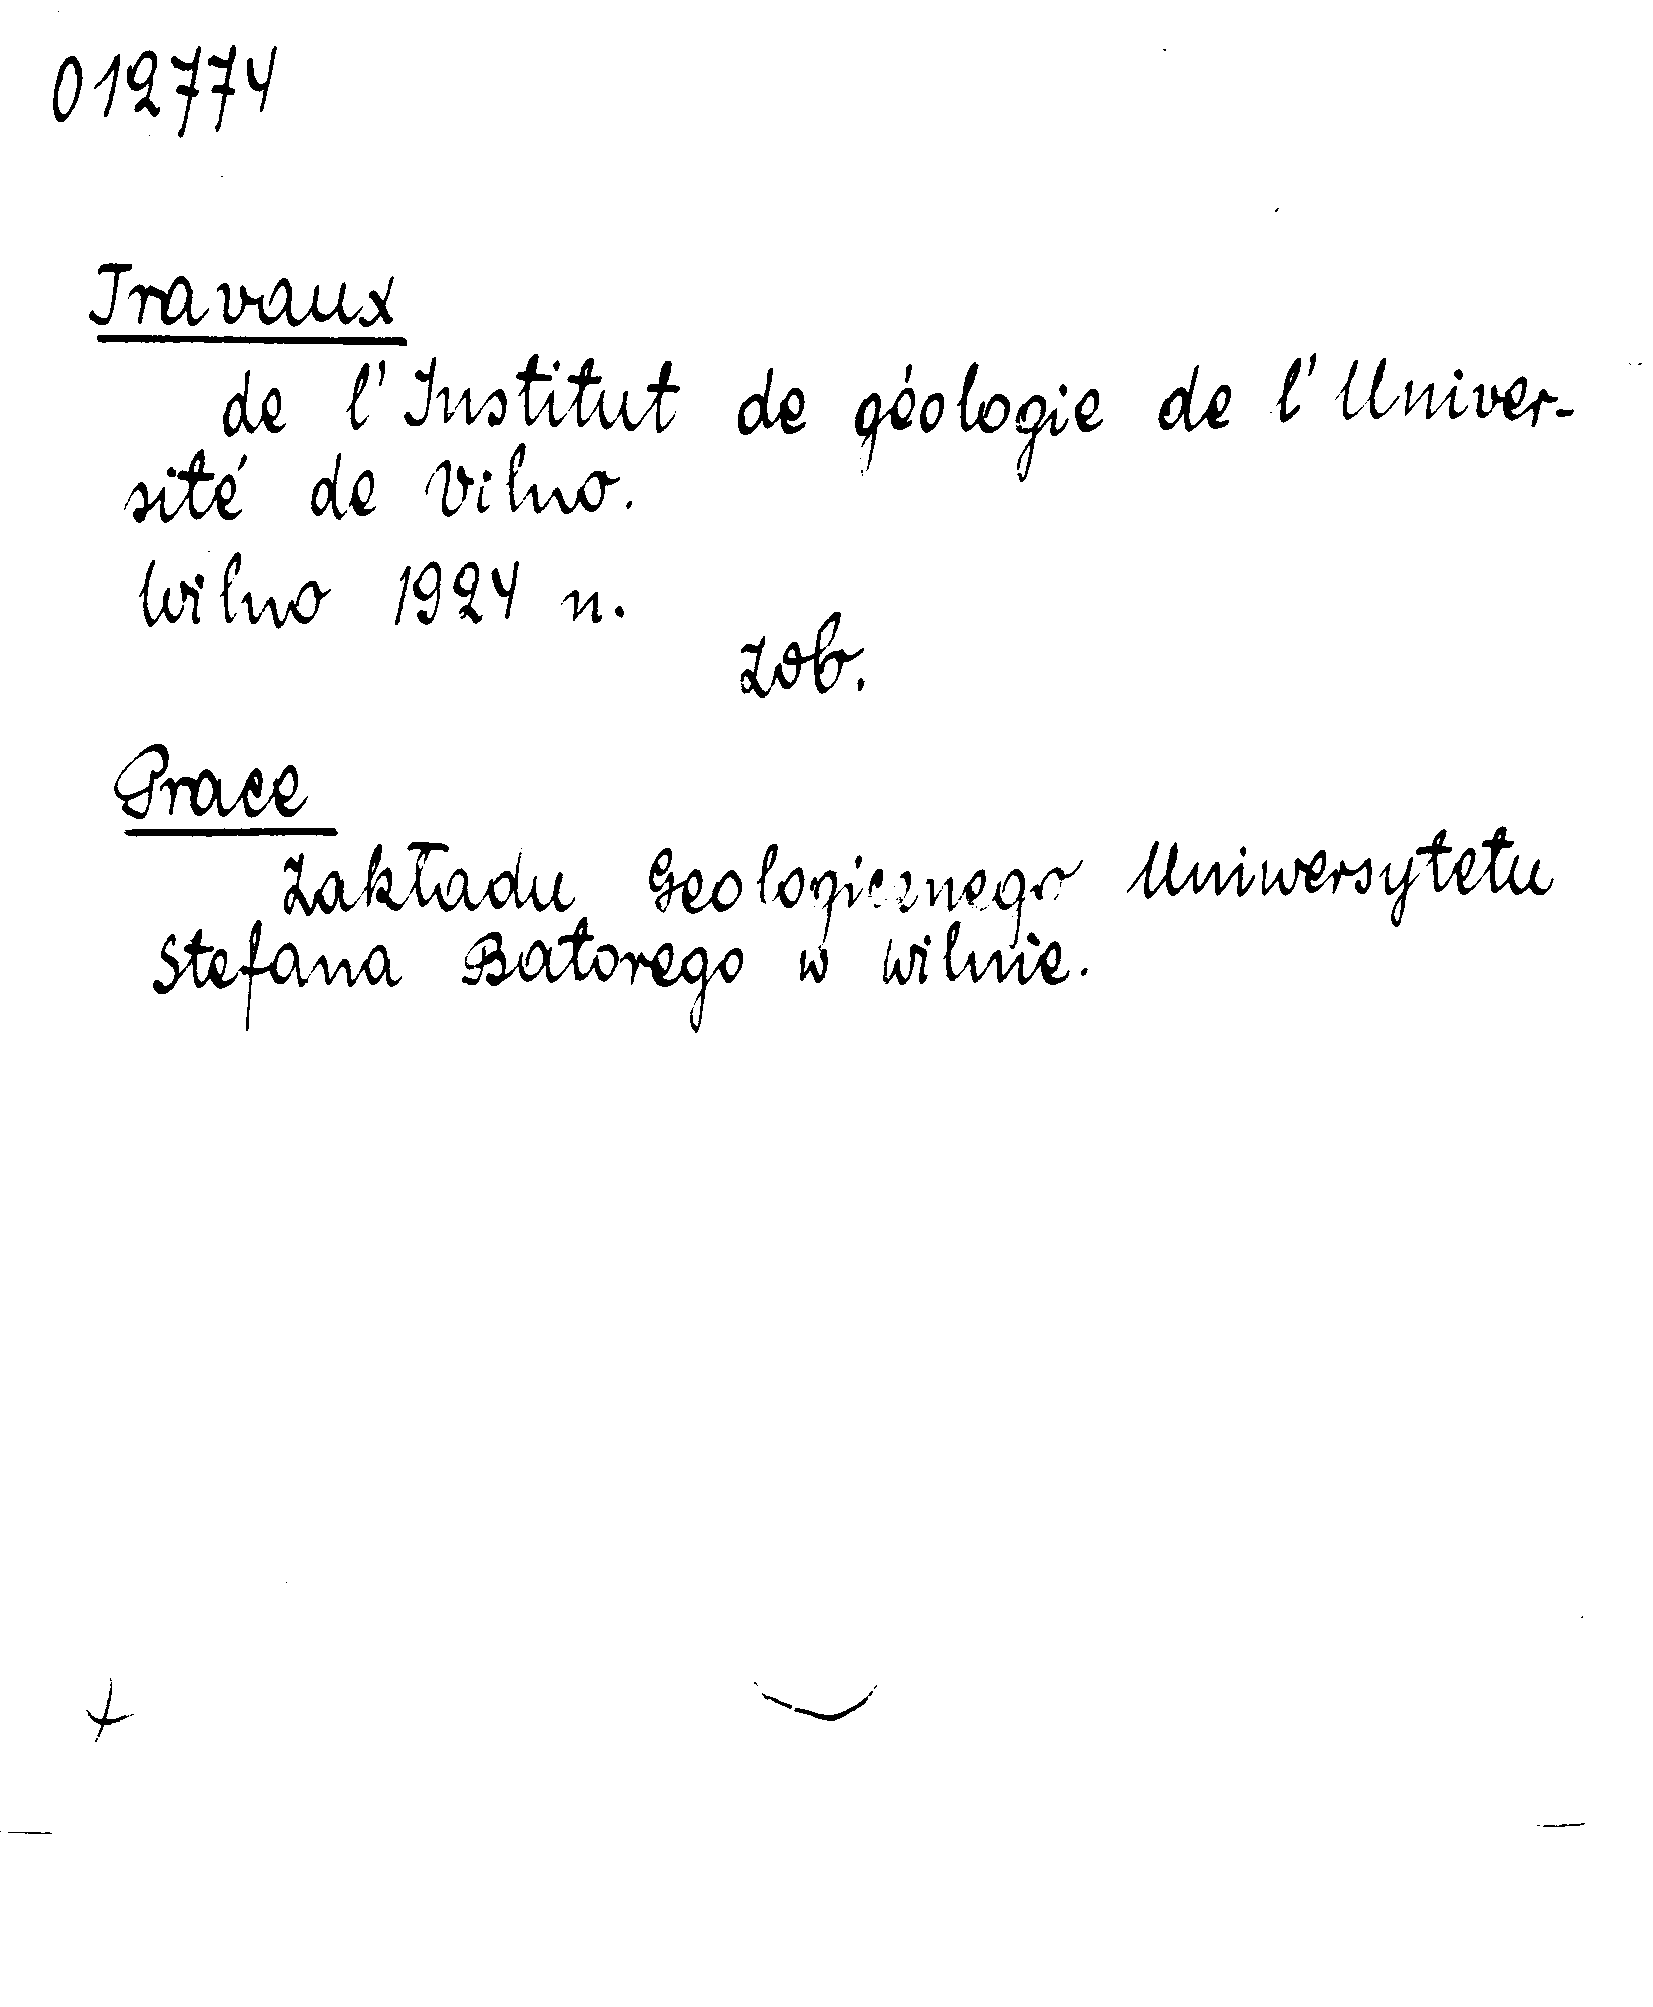 012774
Travaux
de l'Institut de géologie de l'Univer-
sité de Vilno.
Wilno 1924 n.
Zob.
Prace
Zakładu Geologicznego Uniwersytetu
Stefana Batorego w Wilnie.